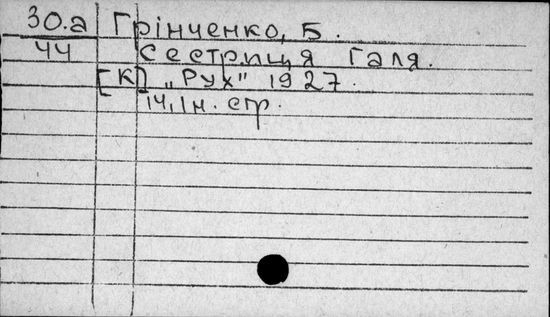 30.а Грінченко, Б.
44 Сестриця Галя.
[К] „Рух" 1927.
14, 1 н. стр.